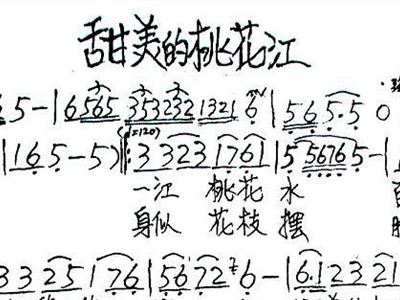 甜美的桃花江
5 - | 6 565 353232 1321 6 | 5 6 5·5 0
| 1 6 5 - 5 ) ‖: 3 323 1761 | 5 5676 5 - |
(♩=120)
一江 桃花 水
身似 花枝 摆
3 3 2 5 1 7 6 | 5 6 7 2 6 - | 6·1 2 3 2 1